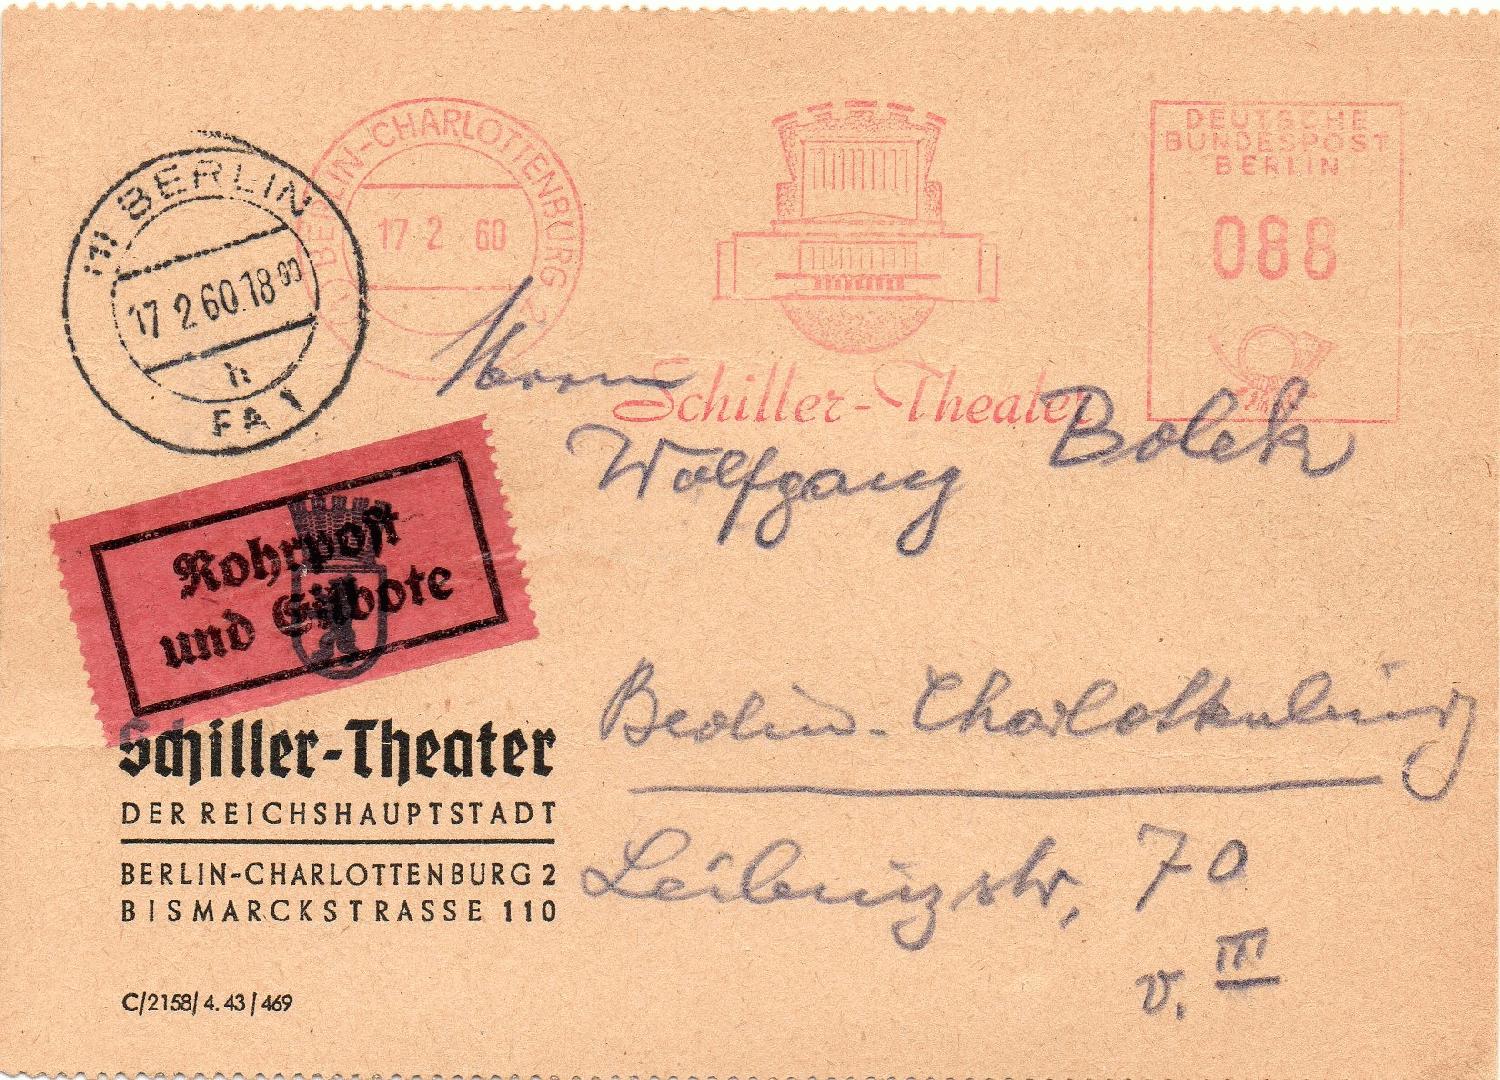 BERLIN-CHARLOTTENBURG 2
17 2 60
DEUTSCHE
BUNDESPOST
BERLIN
088
Schiller-Theater
BERLIN
17 2 60.18⁰⁰
h
FA 1
Herrn
Wolfgang Bolek
Rohrpost
und Eilbote
Berlin-Charlottenburg
Leibnizstr. 70
v. III
Schiller-Theater
DER REICHSHAUPTSTADT
BERLIN-CHARLOTTENBURG 2
BISMARCKSTRASSE 110
C/2158/4.43/469